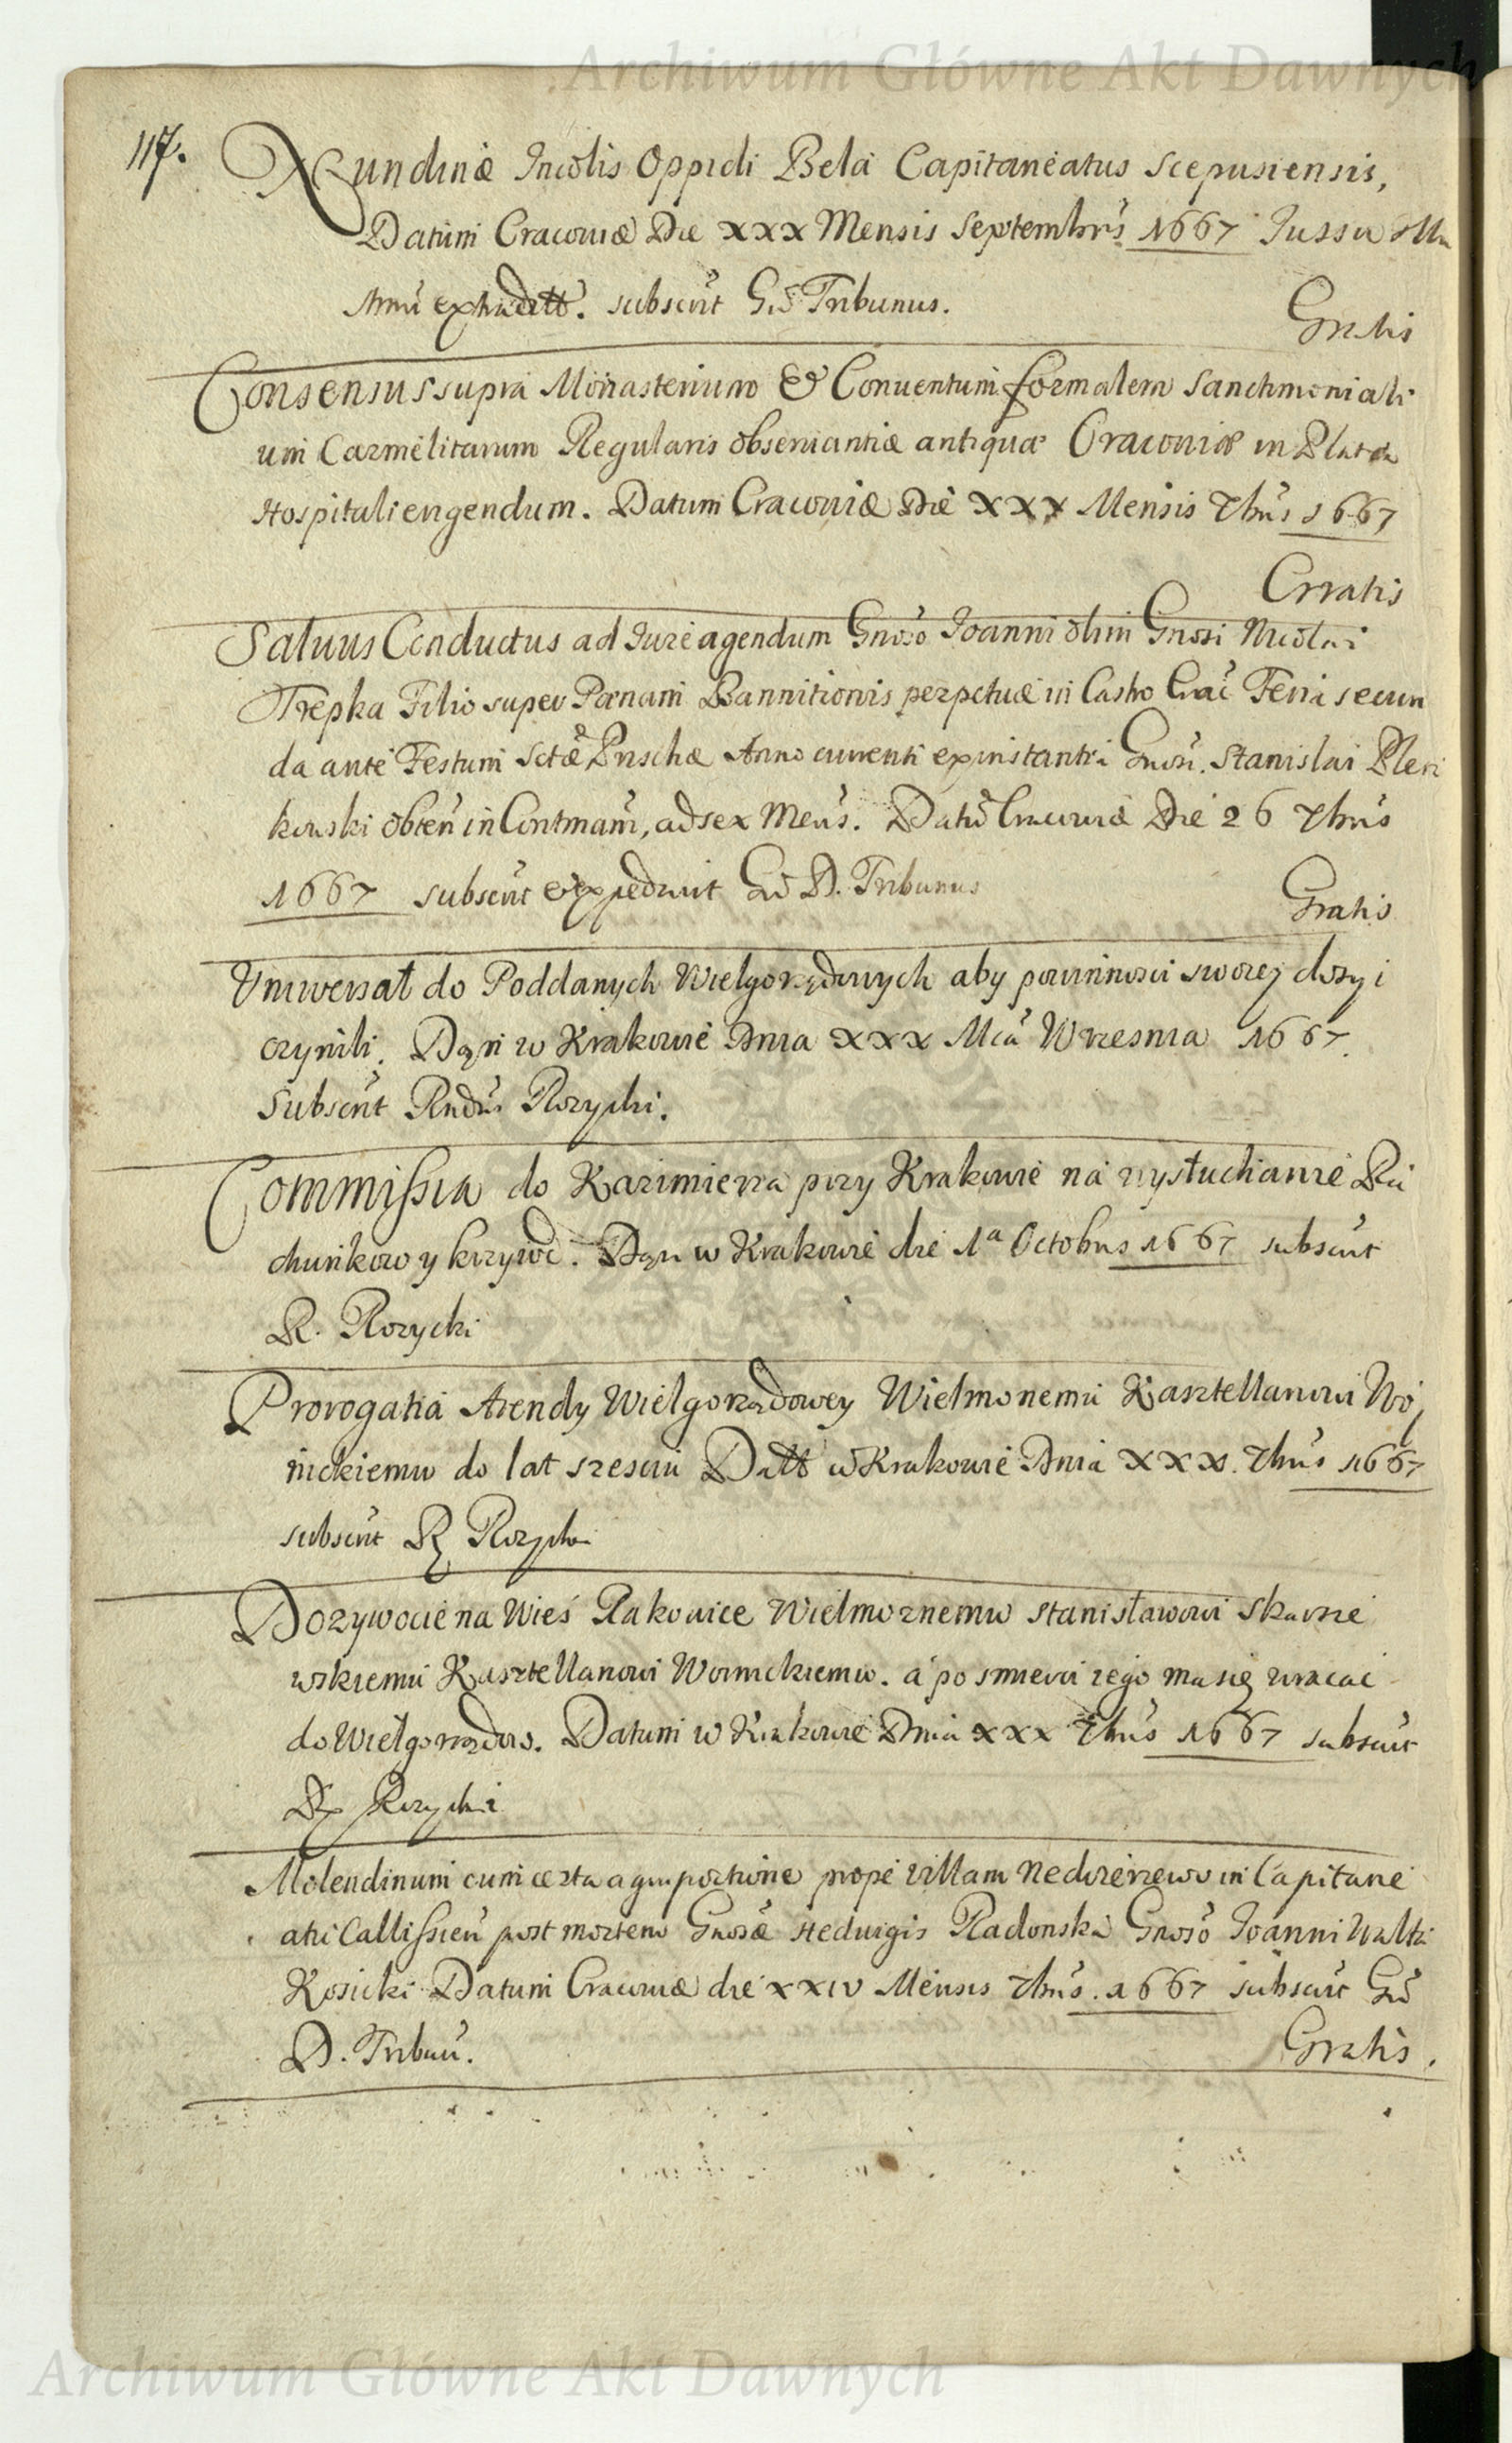 Archiwum Główne Akt Dawnych
117.
Nundinæ Incolis Oppidi Bela Capitaneatus Scepusiensis,
Datum Cracoviæ Die XXX Mensis Septembris 1667 Jussu
extraditt. subscrit Gnd Tribunus.
Gratis
Consensus supra Monasterium & Conventum formalem Sanctimoniali
um Carmelitarum Regularis observantiæ antiquæ Cracoviæ in Platea
Hospitali erigendum. Datum Cracoviæ Die XXX Mensis 7bris 1667
Gratis
Salvus Conductus ad Jure agendum Gnoso Joanni olim Gnosi Nicolai
Trepka Filio super Pœnam Bannitionis perpetuæ in Castro Crac Feria secun
da ante Festum Sctæ Praschæ Anno currenti ex instantia Gnosi. Stanislai
kowski obten in Contmam, ad sex Mens. Datu Cracoviæ Die 26 7bris
1667 subscrit expedivit Gnd D. Tribunus
Gratis
Vniwersał do Poddanych Wielgorządowych aby powinnosci swoiey dosyi
czynili. Dan w Krakowie Dnia XXX Mca Wrzesnia 1667.
Subscrit Rndus Rozycki.
Commissia do Kazimierza przy Krakowie na wysłuchanie Ra
chunkow y krzywd. Dan w Krakowie die 1a Octobris 1667 subscrit
R. Rozycki
Prorogatia Arendy Wielgorządowey Wielmonemu Kasztellanowi Woy
nickiemu do lat szesciu Datt w Krakowie Dnia XXX. 7bris 1667
subscrit R Rozycki
Dozywocie na Wieś Rakowice Wielmoznemu Stanisławowi Skarsze
wskiemu Kasztellanowi Woynickiemu. a po smierci iego ma się wracac
do Wielgorządow. Datum w Krakowie Dnia XXX 7bris 1667 subscrit
R Rozycki
Molendinum cum certa agri portione prope villam Nedzierzewo in Capitane
atu Callissien post mortem Gnosæ Hedvigis Radonska Gnoso Joanni
Kosicki Datum Cracoviæ die XXIV Mensis 7bris. 1667 subscrit Gnd
D. Tribun.
Gratis.
Archiwum Główne Akt Dawnych